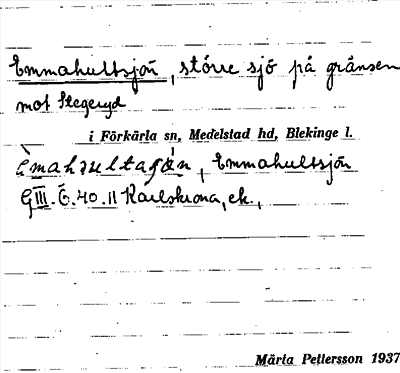 Emmahultsjön, större sjö på gränsen
mot Stegeryd
i Förkärla sn, Medelstad hd, Blekinge l.
Emmahultsjön
GIII. Ö.40.11 Karlskrona, ek.,
Märta Pettersson 1937